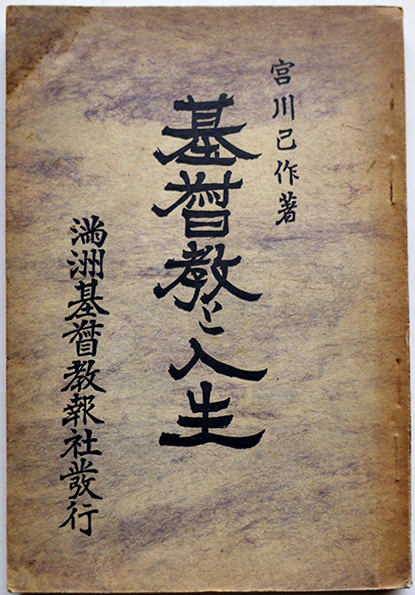 宮川己作著
基督教と人生
満洲基督教報社發行